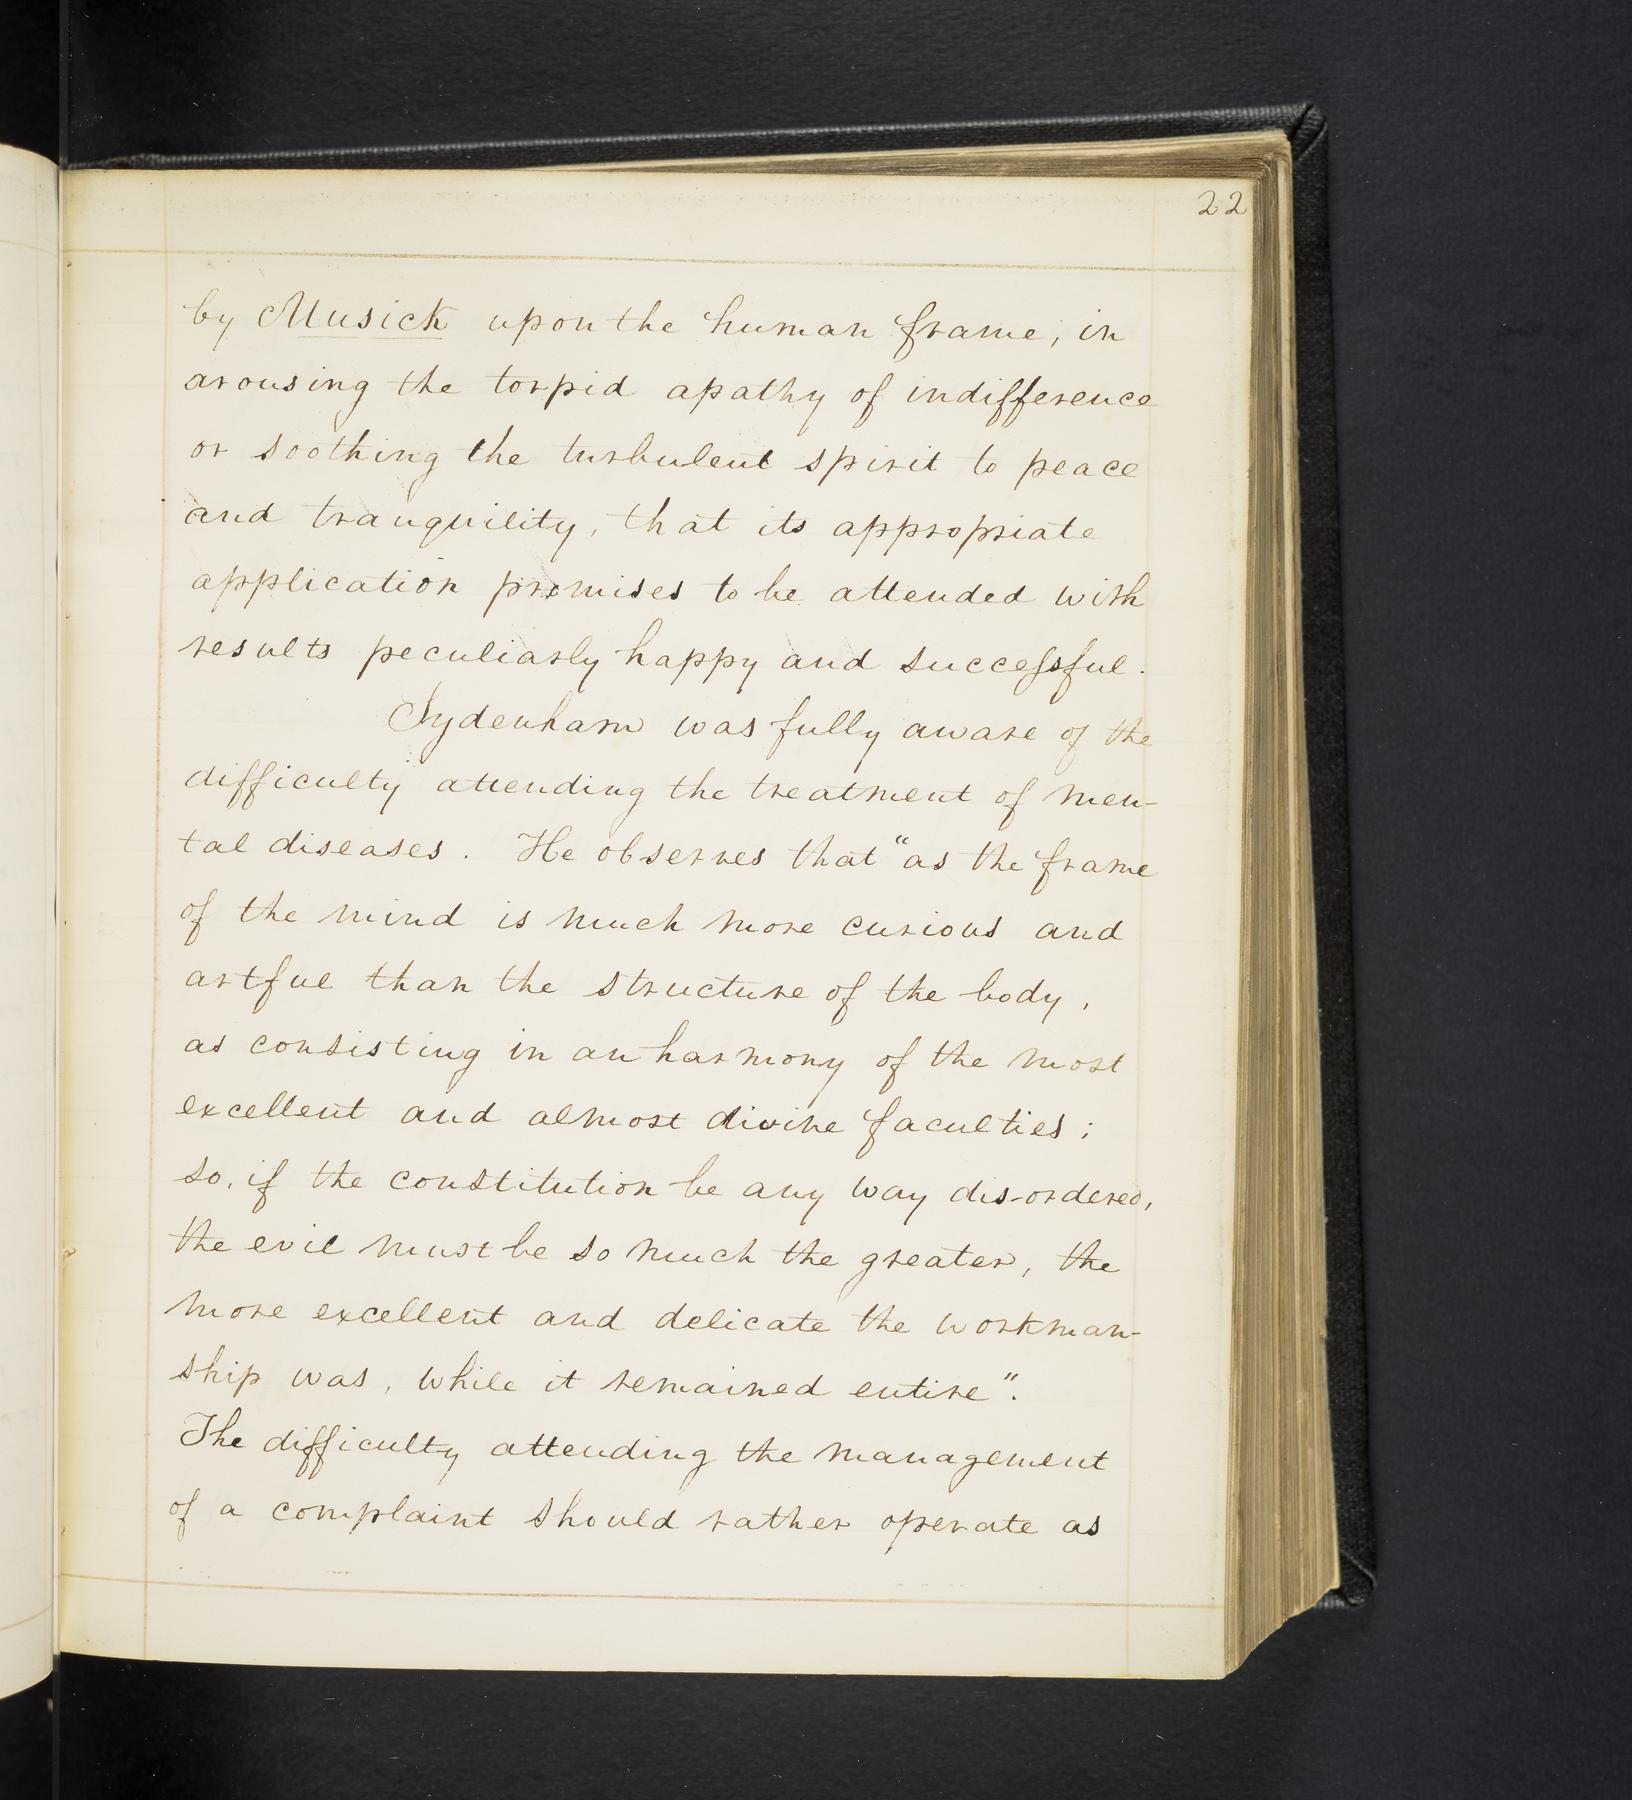 22
by Musick upon the human frame, in
arousing the torpid apathy of indifference
or soothing the turbulent spirit to peace
and tranquility, that its appropriate
application promises to be attended with
results peculiarly happy and successful.
Sydenham was fully aware of the
difficulty attending the treatment of men-
tal diseases. He observes that "as the frame
of the mind is much more curious and
artful than the structure of the body,
as consisting in an harmony of the most
excellent and almost divine faculties;
so, if the constitution be any way dis-ordered,
the evil must be so much the greater, the
more excellent and delicate the workman-
ship was, while it remained entire".
The difficulty attending the management
of a complaint should rather operate as